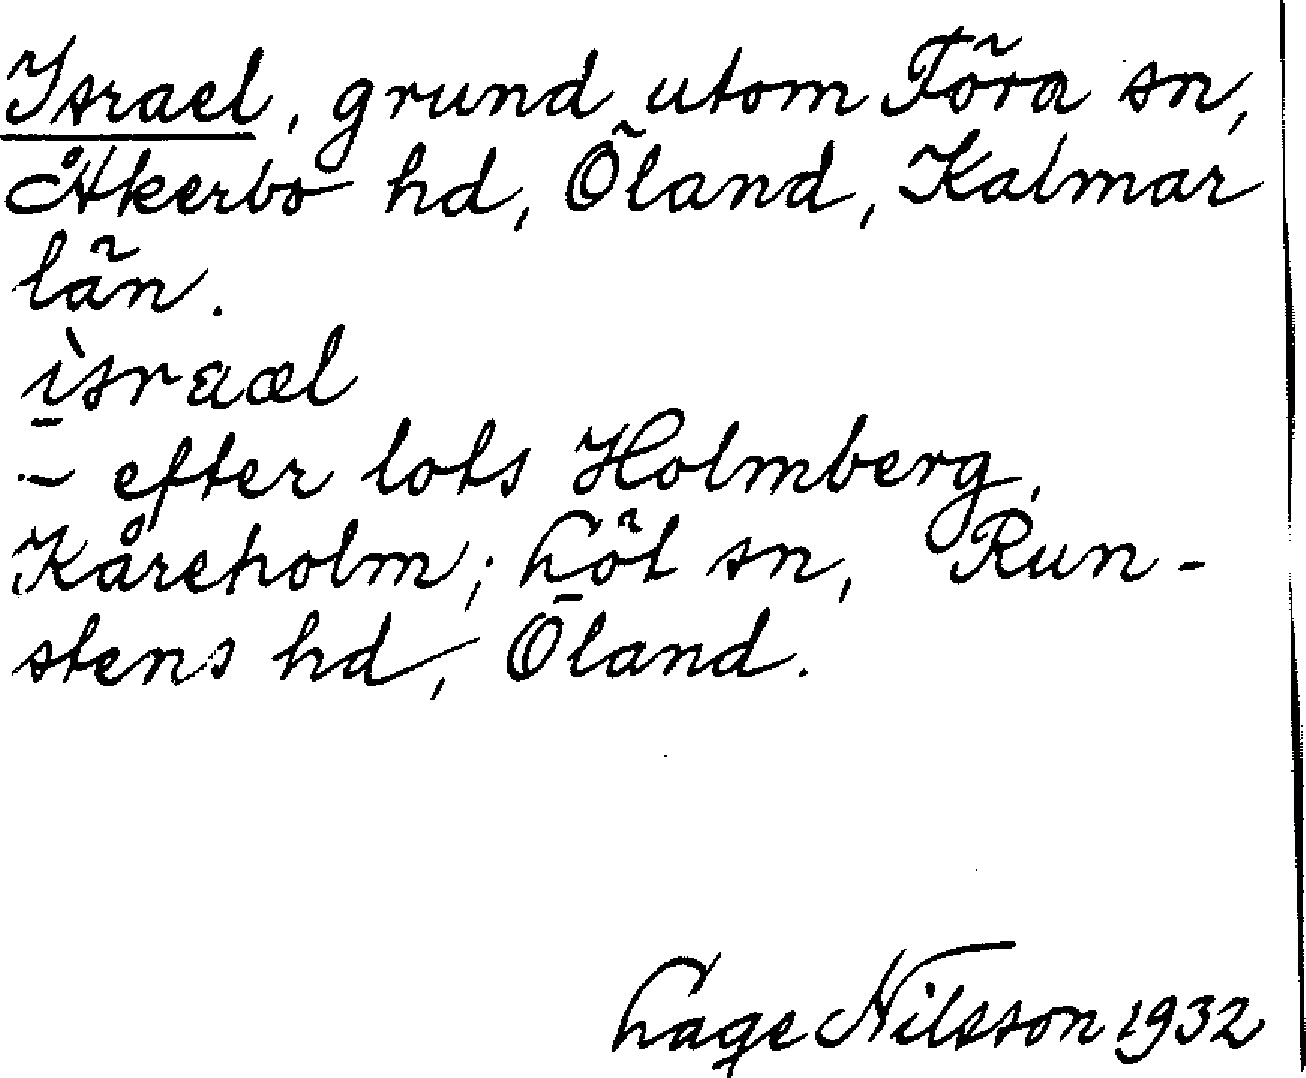 Israel, grund utom Föra sn,
Åkerbo hd, Öland, Kalmar
län.
ìsraæl
~ efter lots Holmberg,
Kåreholm; Löt sn, Run-
stens hd, Öland.
Lage Nilsson 1932